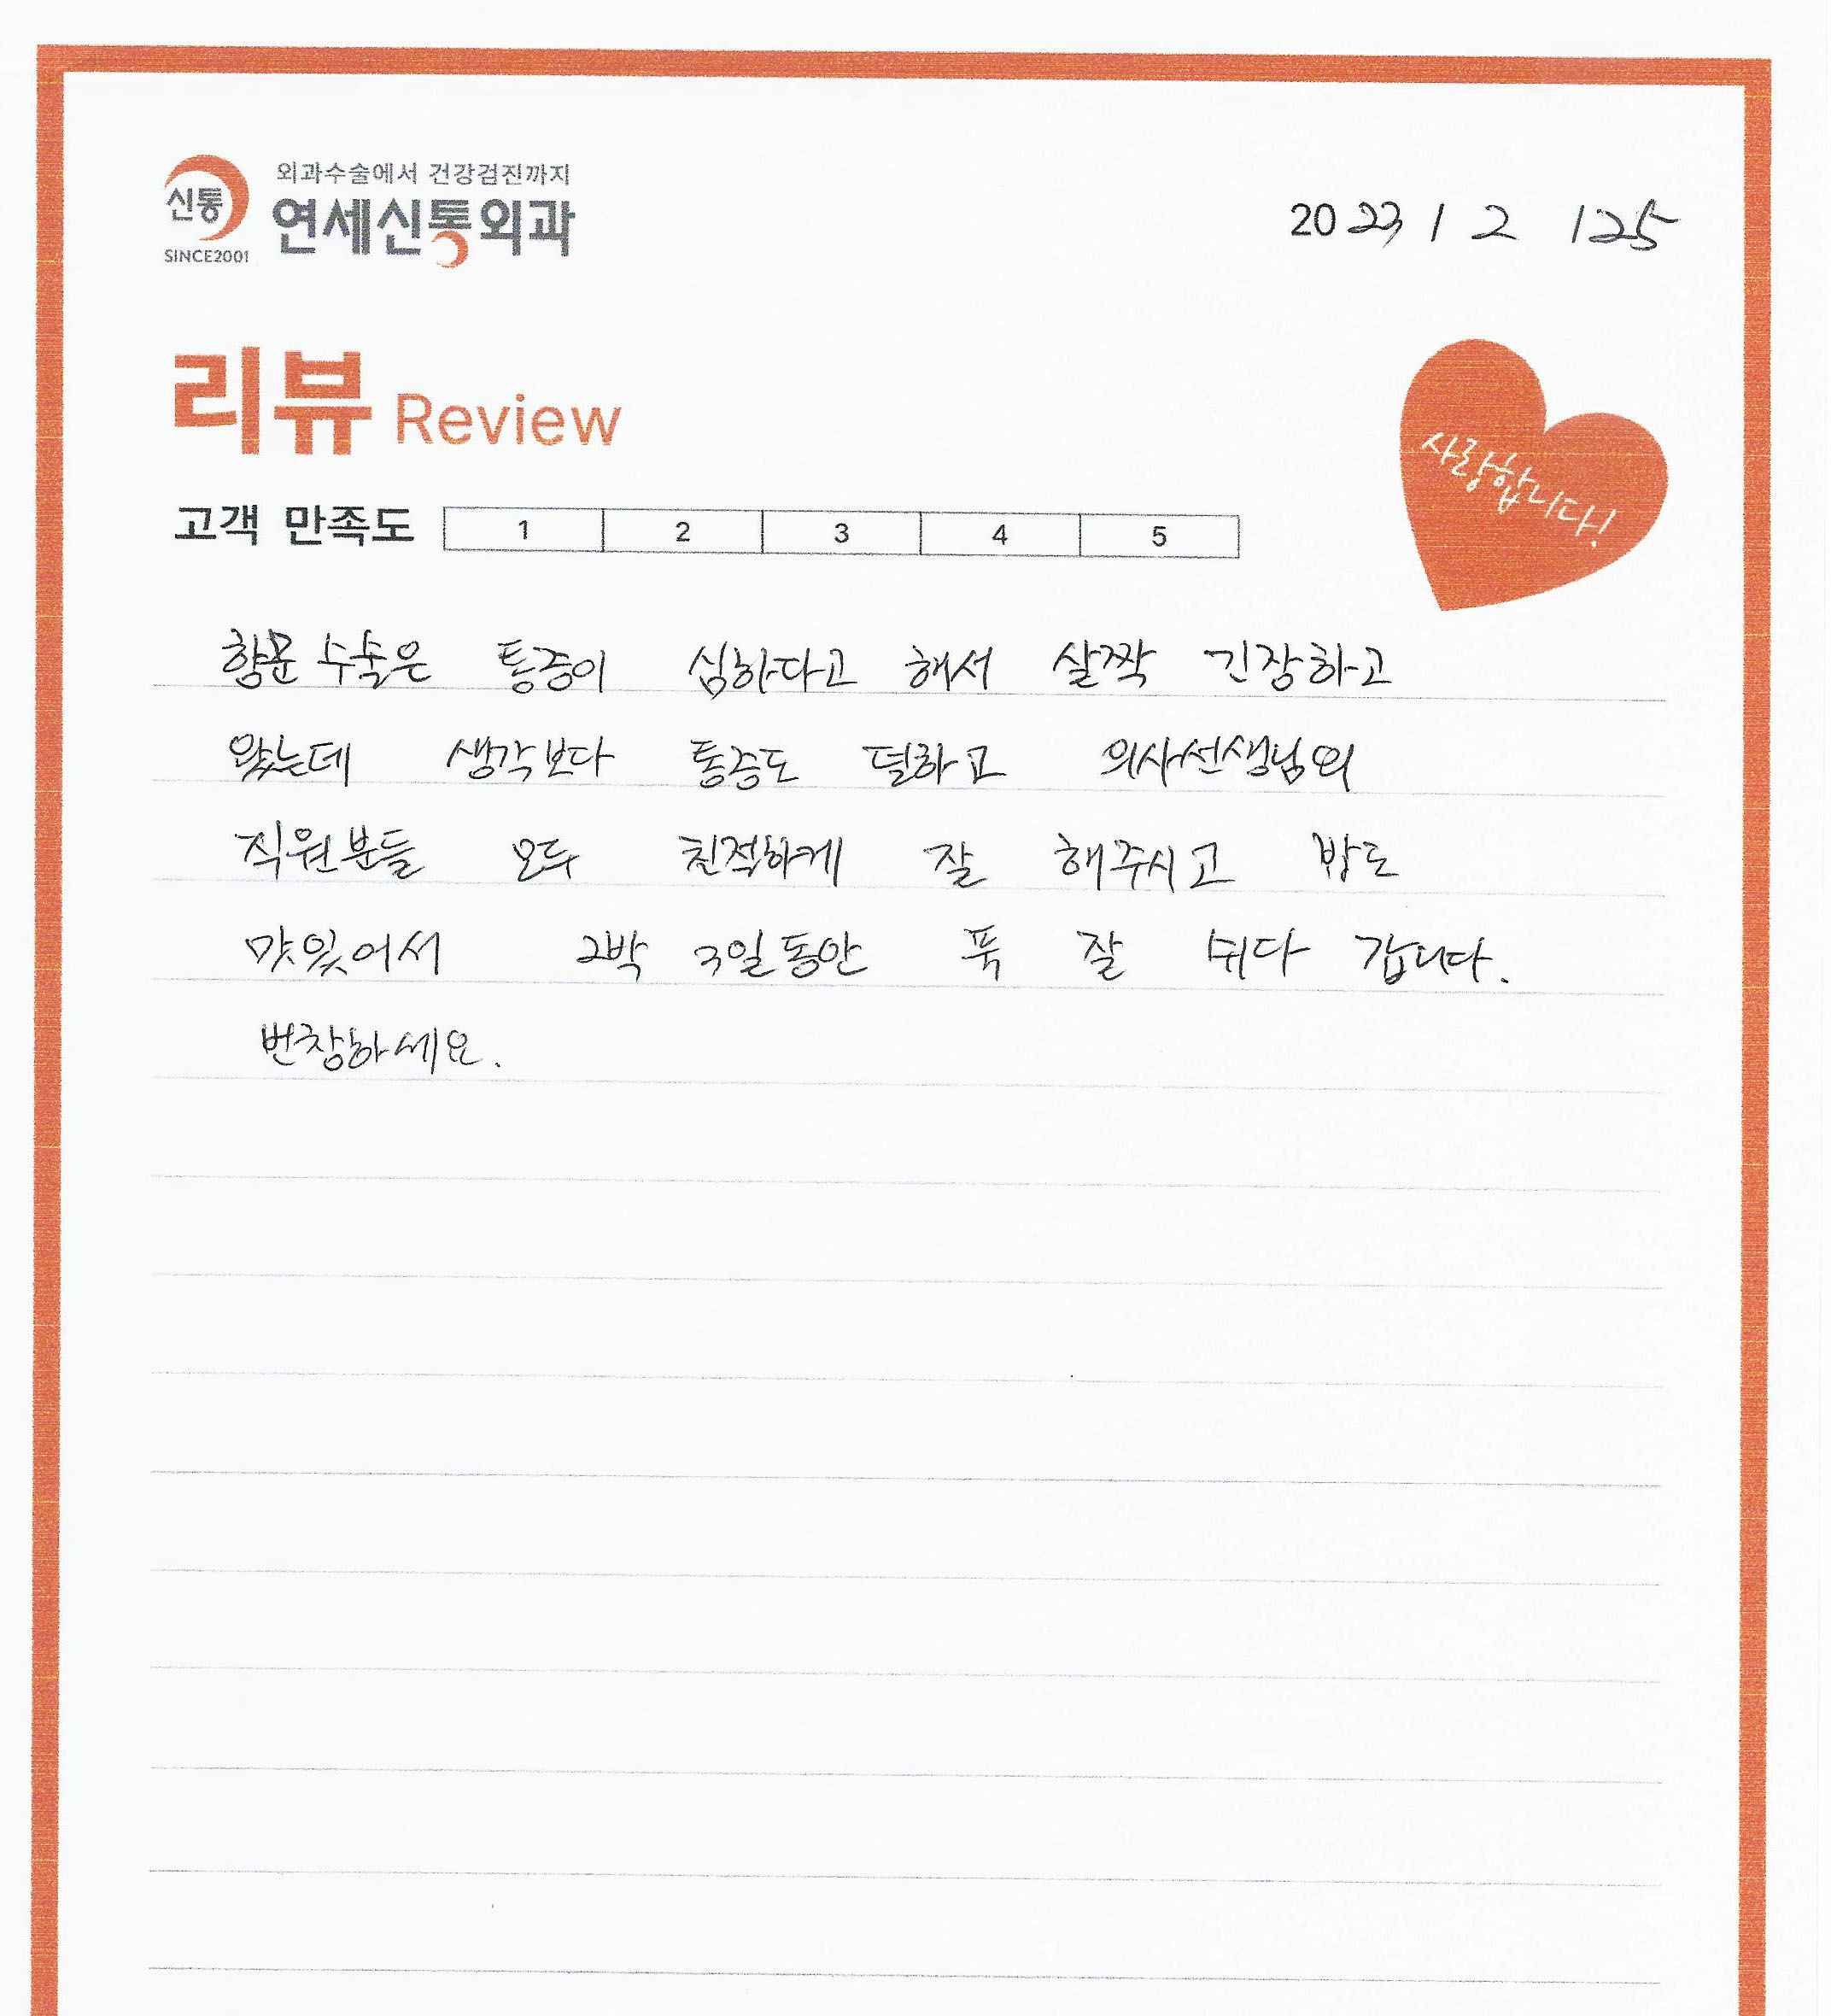 외과수술에서 건강검진까지
신통 연세신통외과
SINCE2001
2023 1 2 125
리뷰 Review
사랑합니다!
고객 만족도 1 2 3 4 5
항문 수술은 통증이 심하다고 해서 살짝 긴장하고
왔는데 생각보다 통증도 덜하고 의사선생님외
직원분들 모두 친절하게 잘 해주시고 밥도
맛있어서 2박 3일동안 푹 잘 쉬다 갑니다.
번창하세요.